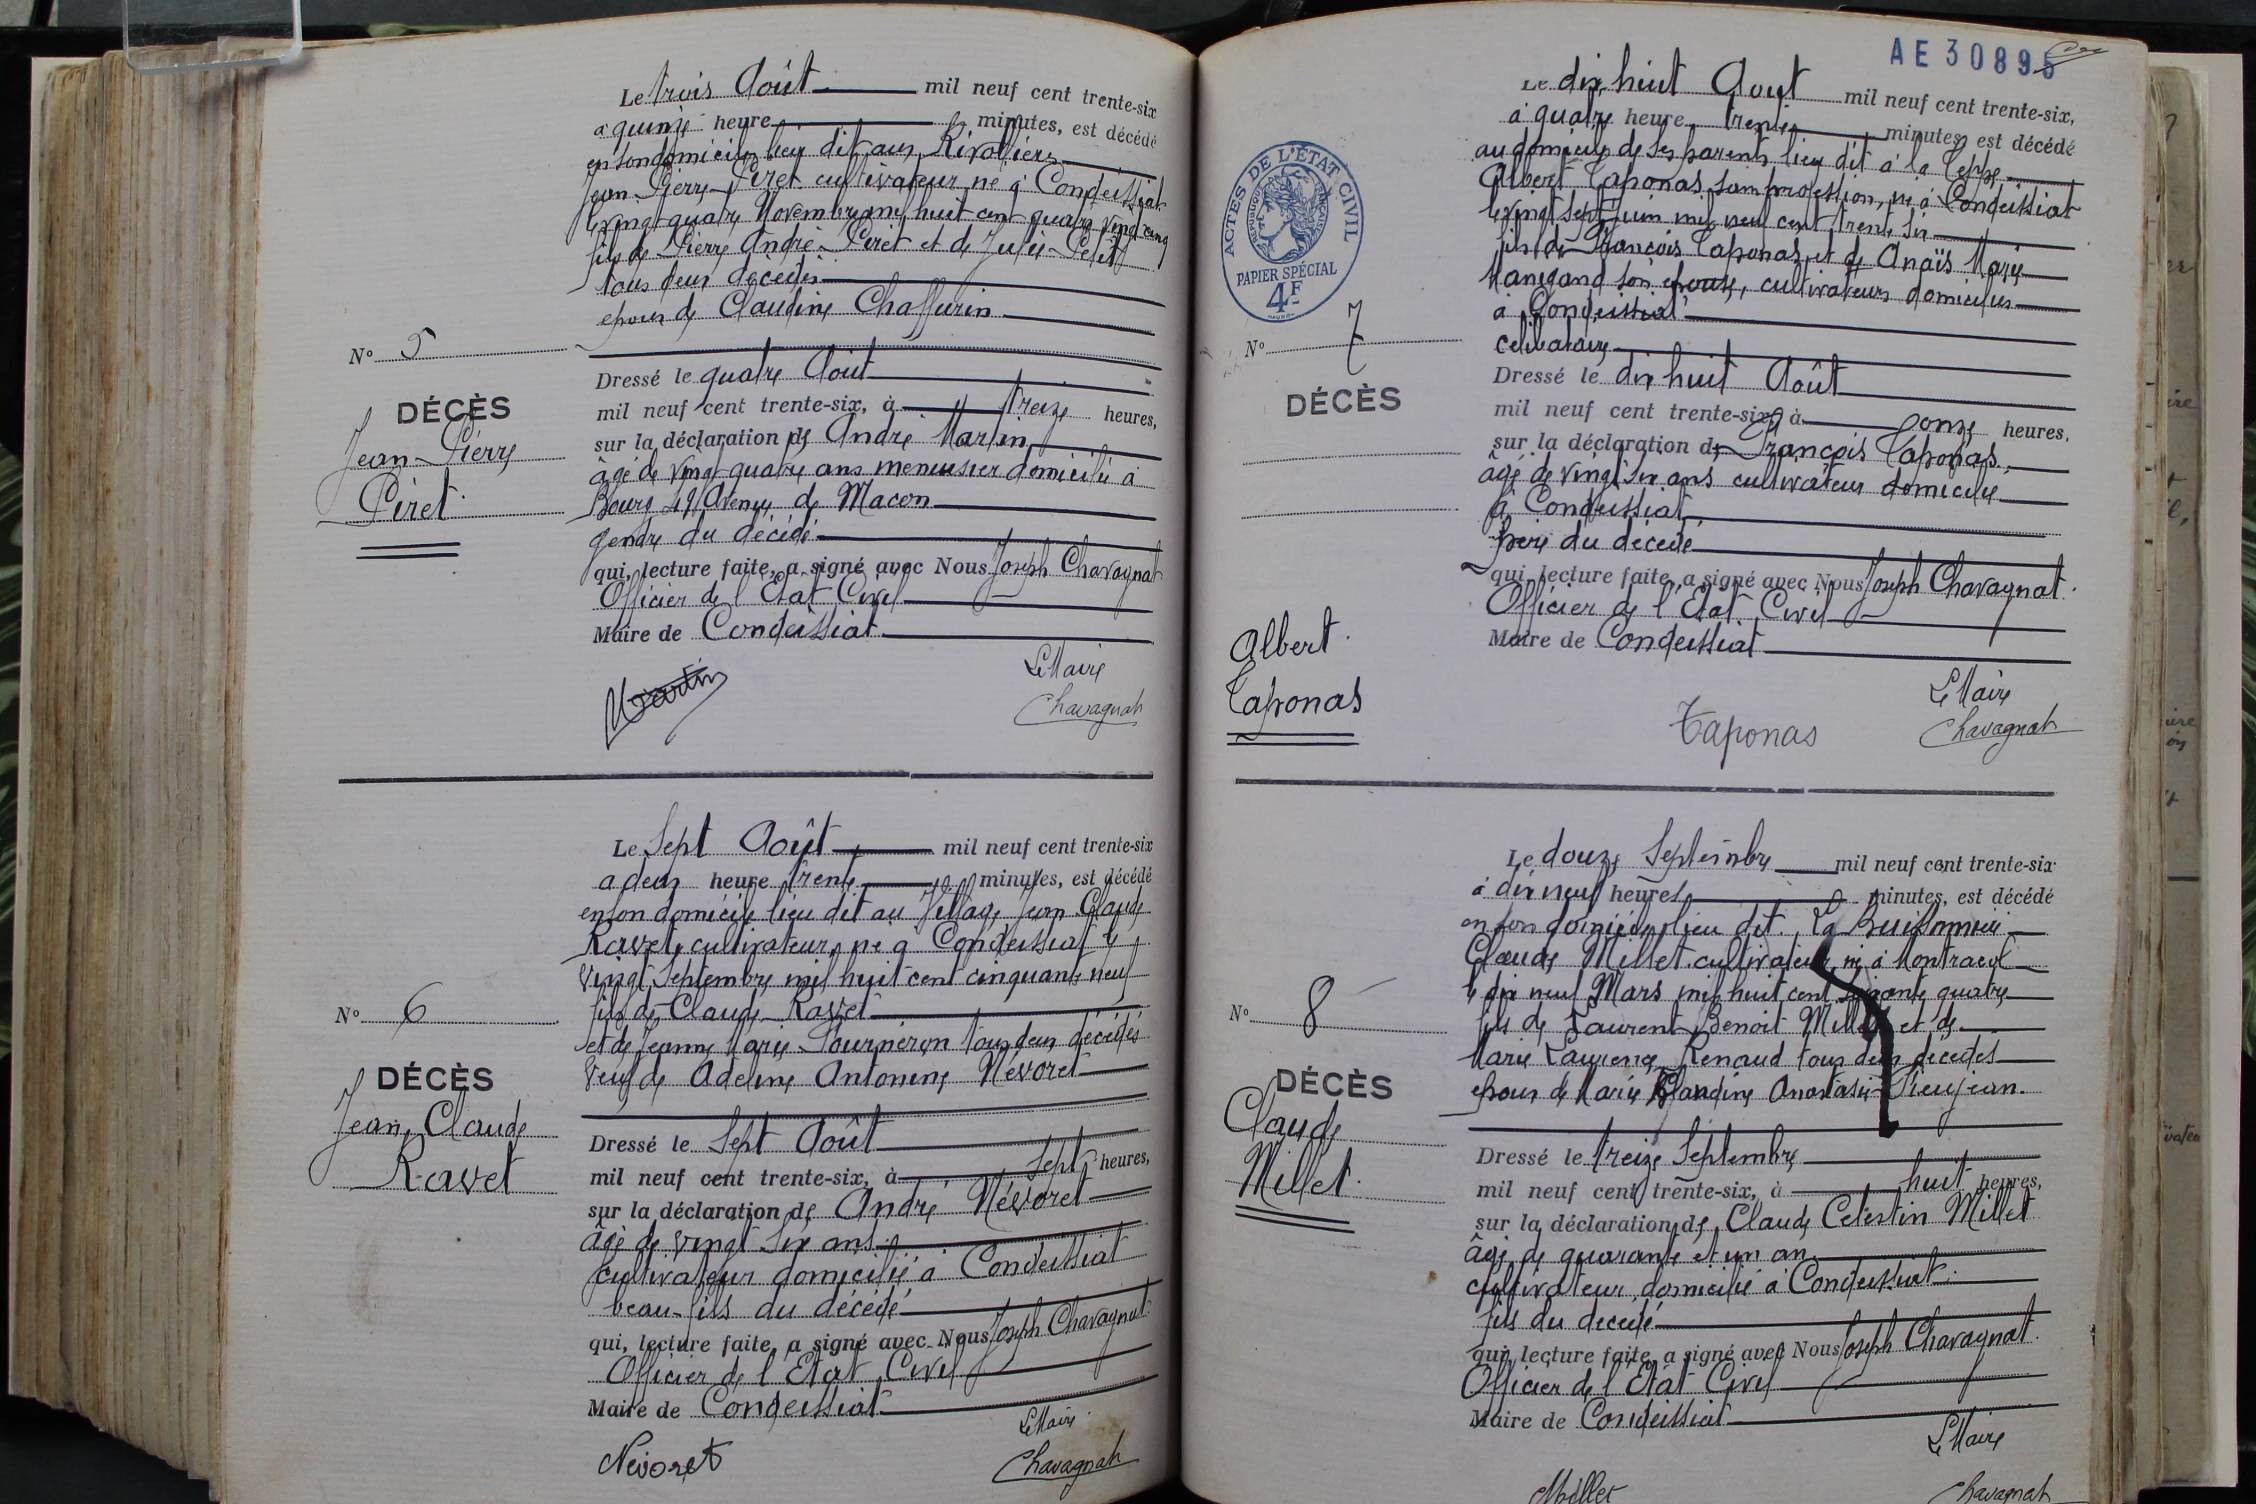 Le trois Août mil neuf cent trente-six
à quinze heure minutes, est décédé
en son domicile lieu dit aux Rivolières
Jean-Pierre Piret cultivateur né à Condeissiat
le vingt quatre Novembre mil huit cent quatre vingt cinq
fils de Pierre André Piret et de Julie Petit
tous deux décédés
époux de Claudine Chaffurin
N° 5
DÉCÈS
Jean-Pierre
Piret
Dressé le quatre Août
mil neuf cent trente-six, à treize heures,
sur la déclaration de André Martin
âgé de vingt quatre ans menuisier domicilié à
Bourg 49 Avenue de Macon
gendre du décédé
qui, lecture faite, a signé avec Nous Joseph Chavagnat
Officier de l'Etat Civil
Maire de Condeissiat
Le Maire
Martin
Chavagnat
Le Sept Août mil neuf cent trente-six
à deux heure trente minutes, est décédé
en son domicile lieu dit au Village Jean Claude
Ravet, cultivateur, né à Condeissiat le
vingt Septembre mil huit cent cinquante neuf
fils de Claude Ravet
et de Jeanne Marie Tourneron tous deux décédés
veuf de Adeline Antonine Névoret
N° 6
DÉCÈS
Jean, Claude
Ravet
Dressé le Sept Août
mil neuf cent trente-six, à sept heures,
sur la déclaration de André Névoret
âgé de vingt six ans
cultivateur domicilié à Condeissiat
beau-fils du décédé
qui, lecture faite, a signé avec Nous Joseph Chavagnat
Officier de l'Etat Civil
Maire de Condeissiat
Le Maire
Névoret
Chavagnat
AE 30895
Le dix huit Aout mil neuf cent trente-six,
à quatre heure trente minutes est décédé
au domicile de ses parents lieu dit à la Teppe
Albert Taponas sans profession, né à Condeissiat
le vingt sept Juin mil neuf cent trente six
fils de François Taponas et de Anaïs Marie
Manigand son épouse, cultivateurs domiciliés
à Condeissiat
célibataire
ACTES DE L'ÉTAT CIVIL
RÉPUBLIQUE FRANÇAISE
PAPIER SPÉCIAL
4F
N° 7
DÉCÈS
Albert
Taponas
Dressé le dix huit Août
mil neuf cent trente-six, à onze heures,
sur la déclaration de François Taponas,
âgé de vingt six ans cultivateur domicilié
à Condeissiat
père du décédé
qui, lecture faite, a signé avec Nous Joseph Chavagnat
Officier de l'Etat Civil
Maire de Condeissiat
Le Maire
Taponas
Chavagnat
Le douze Septembre mil neuf cent trente-six
à dix neuf heures minutes, est décédé
en son domicile lieu dit La Buissonnière
Claude Millet cultivateur, né à Montracol
le dix neuf Mars mil huit cent soixante quatre
fils de Laurent Benoit Millet et de
Marie Laurence Renaud tous deux décédés
époux de Marie Claudine Anastasie Pieujean.
N° 8
DÉCÈS
Claude
Millet
Dressé le treize Septembre
mil neuf cent trente-six, à huit heures,
sur la déclaration de Claude Celestin Millet
âgé de quarante et un an
cultivateur domicilié à Condeissiat
fils du décédé
qui, lecture faite, a signé avec Nous Joseph Chavagnat
Officier de l'Etat Civil
Maire de Condeissiat
Le Maire
Millet
Chavagnat